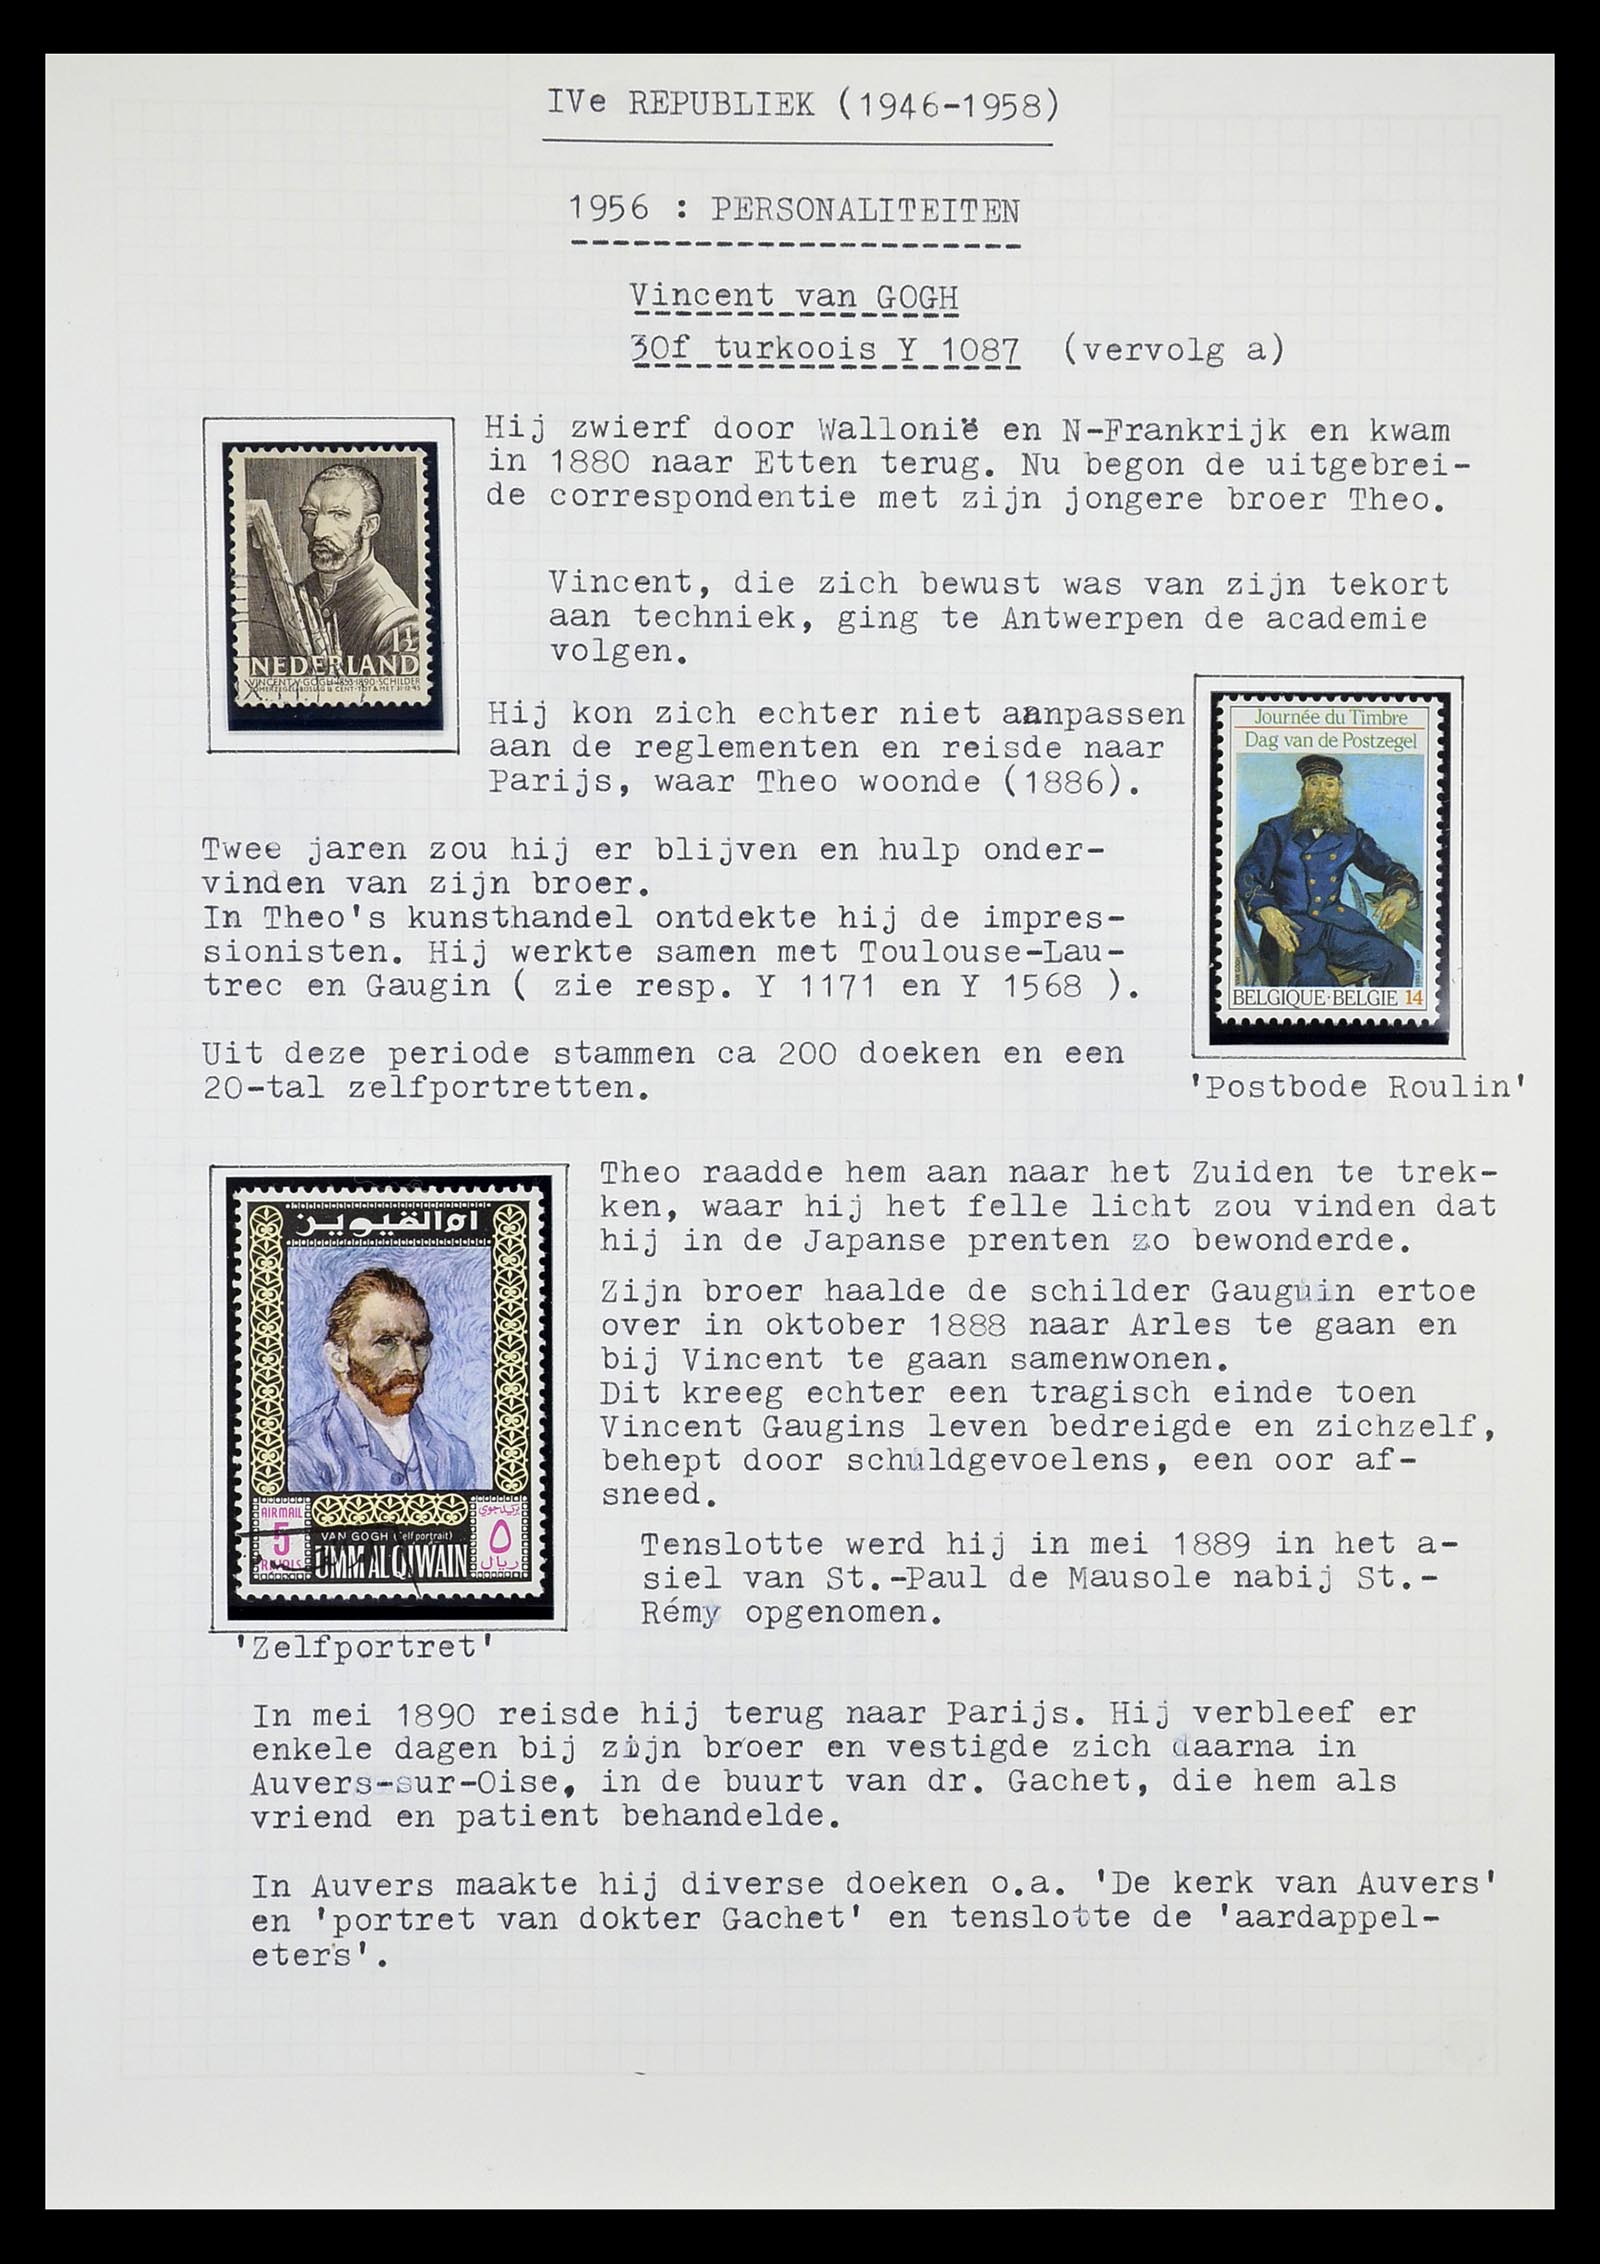 IVe REPUBLIEK (1946-1958)
1956 : PERSONALITEITEN
Vincent van GOGH
30f turkoois Y 1087 (vervolg a)
Hij zwierf door Wallonië en N-Frankrijk en kwam
in 1880 naar Etten terug. Nu begon de uitgebrei-
de correspondentie met zijn jongere broer Theo.
Vincent, die zich bewust was van zijn tekort
aan techniek, ging te Antwerpen de academie
volgen.
1½
NEDERLAND
VINCENT V. GOGH 1853-1890 SCHILDER
ZOMERZEGEL BIJSLAG 1½ CENT TOT & MET 31-12-'45
Hij kon zich echter niet aanpassen
aan de reglementen en reisde naar
Parijs, waar Theo woonde (1886).
Journée du Timbre
Dag van de Postzegel
BELGIQUE·BELGIE 14
'Postbode Roulin'
Twee jaren zou hij er blijven en hulp onder-
vinden van zijn broer.
In Theo's kunsthandel ontdekte hij de impres-
sionisten. Hij werkte samen met Toulouse-Lau-
trec en Gaugin ( zie resp. Y 1171 en Y 1568 ).
Uit deze periode stammen ca 200 doeken en een
20-tal zelfportretten.
ام القيوين
AIRMAIL
5
RIYALS
VAN GOGH (Self portrait)
UMM AL QIWAIN
بريد جوي
٥
ريال
'Zelfportret'
Theo raadde hem aan naar het Zuiden te trek-
ken, waar hij het felle licht zou vinden dat
hij in de Japanse prenten zo bewonderde.
Zijn broer haalde de schilder Gauguin ertoe
over in oktober 1888 naar Arles te gaan en
bij Vincent te gaan samenwonen.
Dit kreeg echter een tragisch einde toen
Vincent Gaugins leven bedreigde en zichzelf,
behept door schuldgevoelens, een oor af-
sneed.
Tenslotte werd hij in mei 1889 in het a-
siel van St.-Paul de Mausole nabij St.-
Rémy opgenomen.
In mei 1890 reisde hij terug naar Parijs. Hij verbleef er
enkele dagen bij zijn broer en vestigde zich daarna in
Auvers-sur-Oise, in de buurt van dr. Gachet, die hem als
vriend en patient behandelde.
In Auvers maakte hij diverse doeken o.a. 'De kerk van Auvers'
en 'portret van dokter Gachet' en tenslotte de 'aardappel-
eters'.